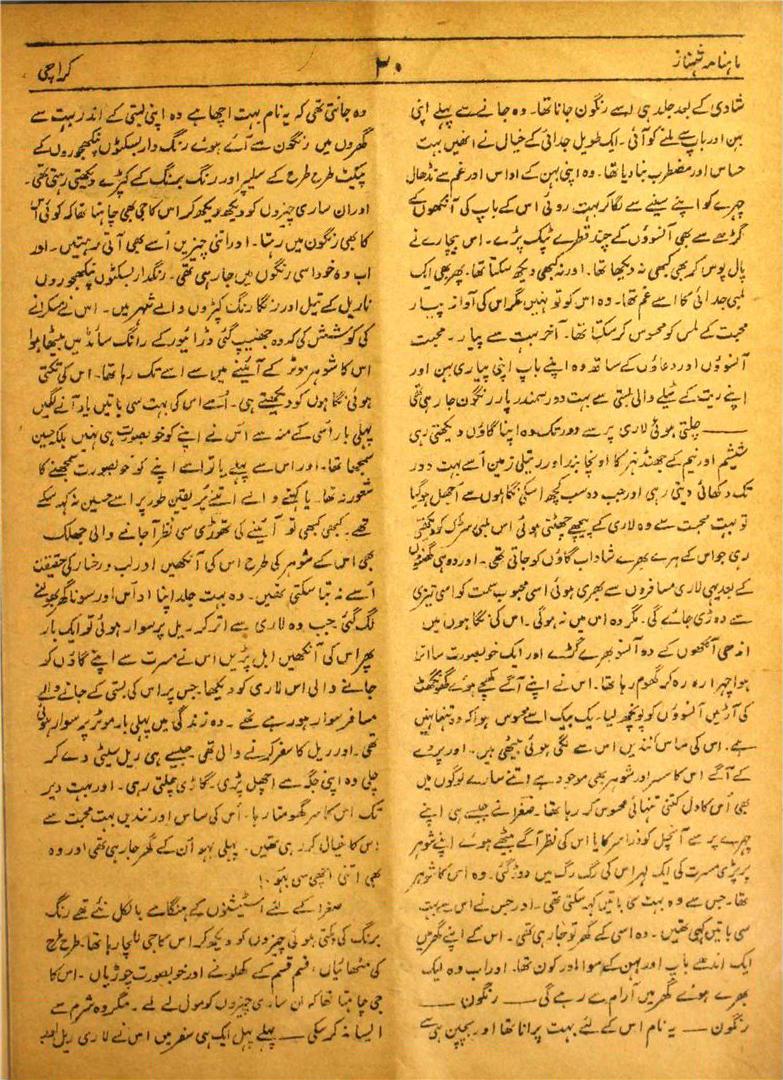 ماہنامہ شہناز
۳۰
کراچی
شادی کے بعد جلد ہی اسے رنگون جانا تھا۔ وہ جانے سے پہلے اپنی
بہن اور باپ سے ملنے کو آئی۔ ایک طویل جدائی کے خیال نے انھیں بہت
حساس اور مضطرب بنا دیا تھا۔ وہ اپنی بہن کے اداس اور غم سے نڈھال
چہرے کو اپنے سینے سے لگا کر بہت روئی اس کے باپ کی آنکھوں کے
گڑھے سے بھی آنسوؤں کے چند قطرے ٹپک پڑے۔ اس بیچارے نے
پال پوس کر بھی کبھی نہ دیکھا تھا۔ اور نہ کبھی دیکھ سکتا تھا۔ پھر بھی ایک
لمبی جدائی کا اسے غم تھا۔ وہ اس کو تو نہیں مگر اس کی آواز پیار
محبت کے لمس کو محسوس کر سکتا تھا۔ آخر بہت سے پیار ۔ محبت
آنسوؤں اور دعاؤں کے ساتھ وہ اپنے باپ اپنی پیاری بہن اور
اپنے ریت کے ٹیلے والی بستی سے بہت دور سمندر پار رنگون جا رہی تھی
——— چلتی ہوئی لاری پر سے دور تک وہ اپنا گاؤں دیکھتی رہی
شیشم اور نیم کے جھنڈ نہر کا اونچا بند اور رتیلی زمین اسے بہت دور
تک دکھائی دیتی رہی اور جب وہ سب کچھ اسکی نگاہوں سے اوجھل ہوگیا
تو بہت محبت سے وہ لاری کے پیچھے چھٹتی ہوئی اس لمبی سڑک کو دیکھتی
رہی جو اس کے ہرے بھرے شاداب گاؤں کو جاتی تھی۔ اور دو ہی گھنٹوں
کے بعد یہی لاری مسافروں سے بھری ہوئی اسی محبوب سمت کو اسی تیزی
سے دوڑی جائے گی۔ مگر وہ اس میں نہ ہوگی۔ اس کی نگاہوں میں
اندھی آنکھوں کے دو آنسو بھرے گڑے اور ایک خوبصورت سا اترا
ہوا چہرا رہ رہ کر گھوم رہا تھا۔ اس نے اپنے آگے کھچے ہوئے گھونگھٹ
کی آڑ میں آنسوؤں کو پونچھ لیا۔ یک بیک اسے محسوس ہوا کہ وہ تنہا نہیں
ہے۔ اس کی ساس نندیں اس سے لگی ہوئی بیٹھی ہیں۔ اور پردے
کے آگے اس کا سسر اور شوہر بھی موجود ہے اتنے سارے لوگوں میں
بھی اُس کا دل کتنی تنہائی محسوس کر رہا تھا۔ صغرا نے جیسے ہی اپنے
چہرے پر سے آنچل کو ذرا سرکایا اس کی نظر آگے بیٹھے ہوئے اپنے شوہر
پر پڑی مسرت کی ایک لہر اس کی رگ رگ میں دوڑ گئی۔ وہ اس کا شوہر
تھا۔ جس سے وہ بہت سی باتیں کہہ سکتی تھی۔ اور جس نے اس سے بہت
سی باتیں کہی تھیں۔ وہ اسی کے گھر تو جا رہی تھی۔ اس کے اپنے گھر میں
ایک اندھے باپ اور بہن کے سوا اور کون تھا۔ اور اب وہ ایک
بھرے ہوئے گھر میں آرام سے رہے گی —— رنگون! ——
رنگون —— یہ نام اس کے لئے بہت پرانا تھا اور بچپن ہی سے
وہ جانتی تھی کہ یہ نام بہت اچھا ہے وہ اپنی بستی کے اندر بہت سے
گھروں میں رنگون سے آئے ہوئے رنگ دار بسکٹوں نپکھجوروں کے
پیکٹ طرح طرح کے سلیپر اور رنگ برنگ کے کپڑے دیکھتی رہتی تھی۔
اور ان ساری چیزوں کو دیکھ دیکھ کر اس کا جی بھی چاہتا تھا کہ کوئی اس
کا بھی رنگون میں رہتا۔ اور اتنی چیزیں اُسے بھی آتی رہتیں۔ اور
اب وہ خود اسی رنگوں میں جا رہی تھی۔ رنگدار بسکٹوں نپکھجوروں
ناریل کے تیل اور رنگا رنگ کپڑوں والے شہر میں۔ اس نے مسکرانے
کی کوشش کی کہ وہ جھنیپ گئی ڈرائیور کے رانگ سائڈ میں بیٹھا ہوا
اس کا شوہر موٹر کے آئینے میں سے اسے تک رہا تھا۔ اس کی تکتی
ہوئی نگاہوں کو دیکھتے ہی۔ اُسے اس کی بہت سی باتیں یاد آنے لگیں
پہلی بار اُسی کے منہ سے اُس نے اپنے کو خوبصورت ہی نہیں بلکہ حسین
سمجھا تھا۔ اور اس سے پہلے یا تو اسے اپنے کو خوبصورت سمجھنے کا
شعور نہ تھا۔ یا کہنے والے اتنے پُر یقین طور پر اسے حسین نہ کہہ سکے
تھے۔ کبھی کبھی تو آئینے کی تھوڑی سی نظر آ جانے والی جھلک
بھی اس کے شوہر کی طرح اس کی آنکھیں اور لب و رخسار کی حقیقت
اُسے نہ بتا سکتی تھیں۔ وہ بہت جلد اپنا اداس اور سونا گھر بھولنے
لگ گئی جب وہ لاری سے اتر کر ریل پر سوار ہوئی تو ایک بار
پھر اس کی آنکھیں ابل پڑیں اس نے مسرت سے اپنے گاؤں کو
جانے والی اس لاری کو دیکھا۔ جس پر اس کی بستی کے جانے والے
مسافر سوار ہو رہے تھے۔ وہ زندگی میں پہلی بار موٹر پر سوار ہوئی
تھی۔ اور ریل کا سفر کرنے والی تھی۔ جیسے ہی ریل سیٹی دے کر
چلی وہ اپنی جگہ سے اچھل پڑی۔ گاڑی چلتی رہی۔ اور بہت دیر
تک اس کا سر گھومتا رہا۔ اُس کی ساس اور نندیں بہت محبت سے
اس کا خیال کر رہی تھیں۔ پہلی بہو اُن کے گھر جا رہی تھی اور وہ
بھی اتنی اچھی سی بہو۔!
صغرا کے لئے اسٹیشنوں کے ہنگامے بالکل نئے تھے رنگ
برنگ کی بکتی ہوئی چیزوں کو دیکھ کر اس کا جی للچا رہا تھا۔ طرح طرح
کی مٹھائیاں، قسم قسم کے کھلونے اور خوبصورت چوڑیاں۔ اس کا
جی چاہتا تھا کہ ان ساری چیزوں کو مول لے لے۔ مگر وہ شرم سے
ایسا نہ کر سکی —— پہلے پہل ایک ہی سفر میں اس نے لاری ریل